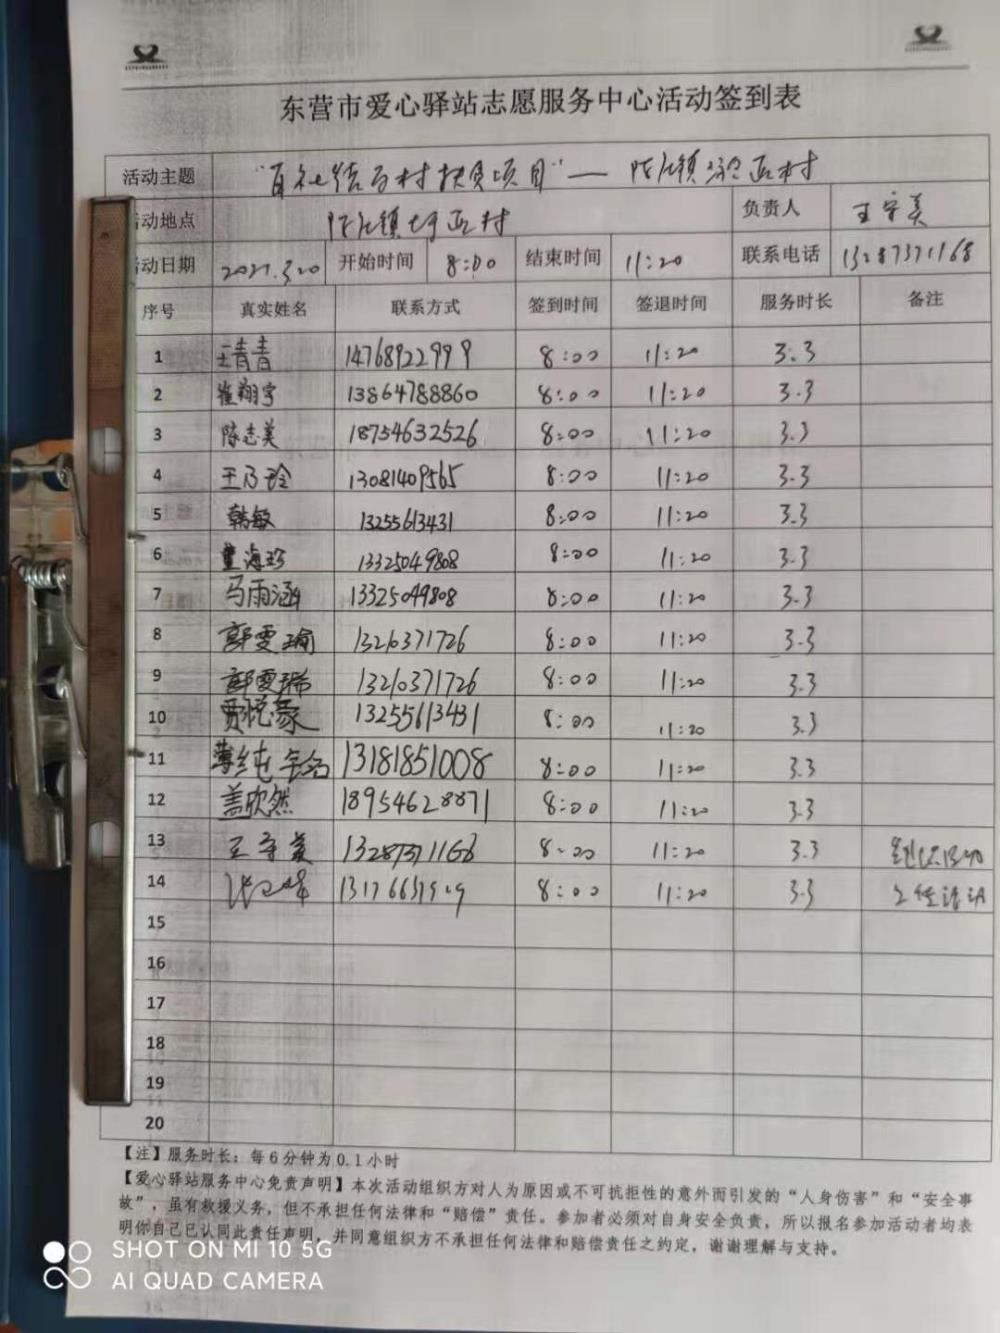 东营市爱心驿站志愿服务中心活动签到表
活动主题 "百社结百村扶贫项目"—
活动地点
负责人 王守美
活动日期 2021.3.20 开始时间 8:00 结束时间 11:20 联系电话 13287371168
序号 真实姓名 联系方式 签到时间 签退时间 服务时长 备注
1 王青青 14768922999 8:00 11:20 3.3
2 崔翔宇 13864788860 8:00 11:20 3.3
3 陈志美 18754632526 8:00 11:20 3.3
4 王乃玲 13081409565 8:00 11:20 3.3
5 韩敏 13255613431 8:00 11:20 3.3
6 董海珍 13325049808 8:00 11:20 3.3
7 马雨涵 13325049808 8:00 11:20 3.3
8 郭雯瑜 13210371726 8:00 11:20 3.3
9 郭雯瑞 13210371726 8:00 11:20 3.3
10 贾悦豪 13255613431 8:00 11:20 3.3
11 13181851008 8:00 11:20 3.3
12 盖欣然 18954628871 8:00 11:20 3.3
13 王守美 13287371168 8:00 11:20 3.3
14 8:00 11:20 3.3
15
16
17
18
19
20
【注】服务时长：每6分钟为0.1小时
【爱心驿站服务中心免责声明】本次活动组织方对人为原因或不可抗拒性的意外而引发的“人身伤害”和“安全事
故”，虽有救援义务，但不承担任何法律和“赔偿”责任。参加者必须对自身安全负责，所以报名参加活动者均表
明你自己已认同此责任声明，并同意组织方不承担任何法律和赔偿责任之约定，谢谢理解与支持。
SHOT ON MI 10 5G
AI QUAD CAMERA